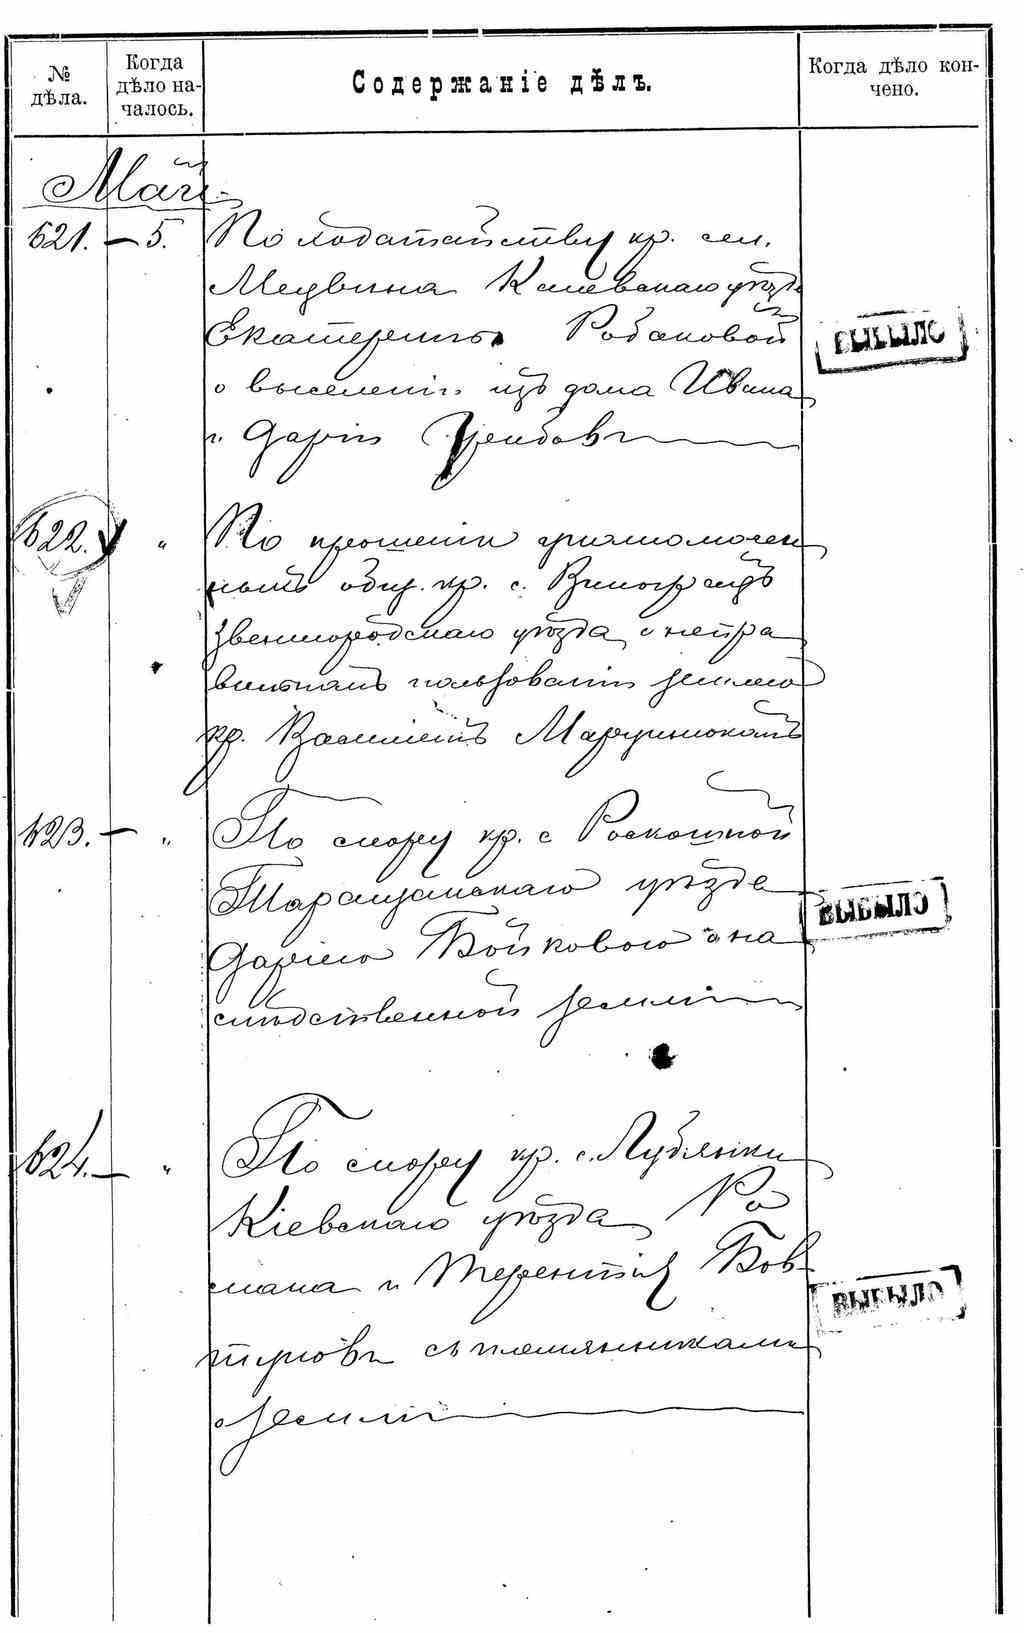 № дѣла.
Когда дѣло на-
чалось.
Содержаніе дѣлъ.
Когда дѣло кон-
чено.
Май
621. — 5. По ходатайству кр. сел.
Медвина Каневскаго уѣзда
Екатерины Робаковой
ВЫБЫЛО
о выселеніи изъ дома Ивана
и Даріи
622. " По прошенію уполномочен
ныхъ общ. кр. с. Виноградъ
Звенигородскаго уѣзда о непра
вильномъ пользованіи землею
кр. Василіемъ Марцинюкомъ
623. — " По спору кр. с Роскошной
Таращанскаго уѣзда
ВЫБЫЛО
Даріею Бойковою о на
слѣдственной земли
624. — " По спору кр. с. Лубянки
Кіевскаго уѣзда Ро
мана и Терентія Бов-
ВЫБЫЛО
туновъ съ племянниками
о земли